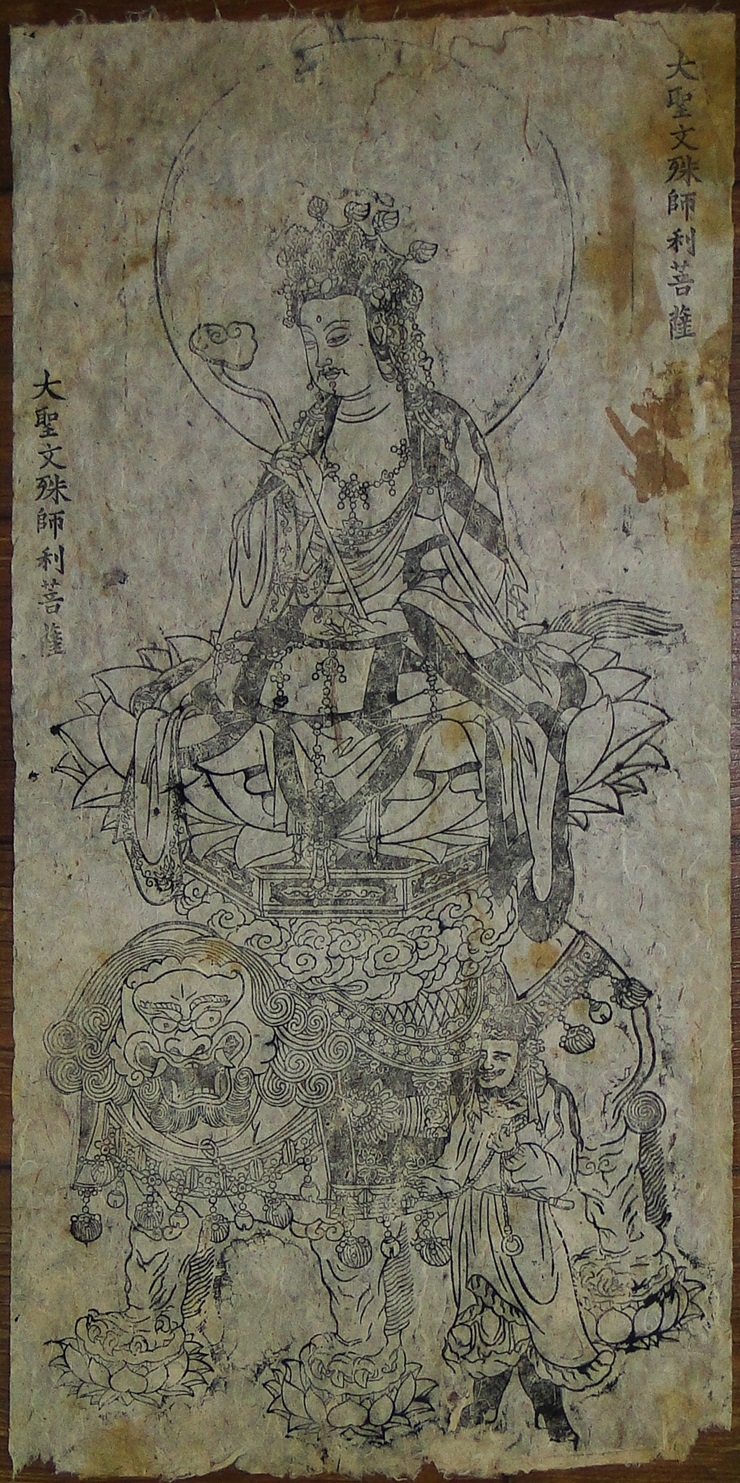 大聖文殊師利菩薩
大聖文殊師利菩薩